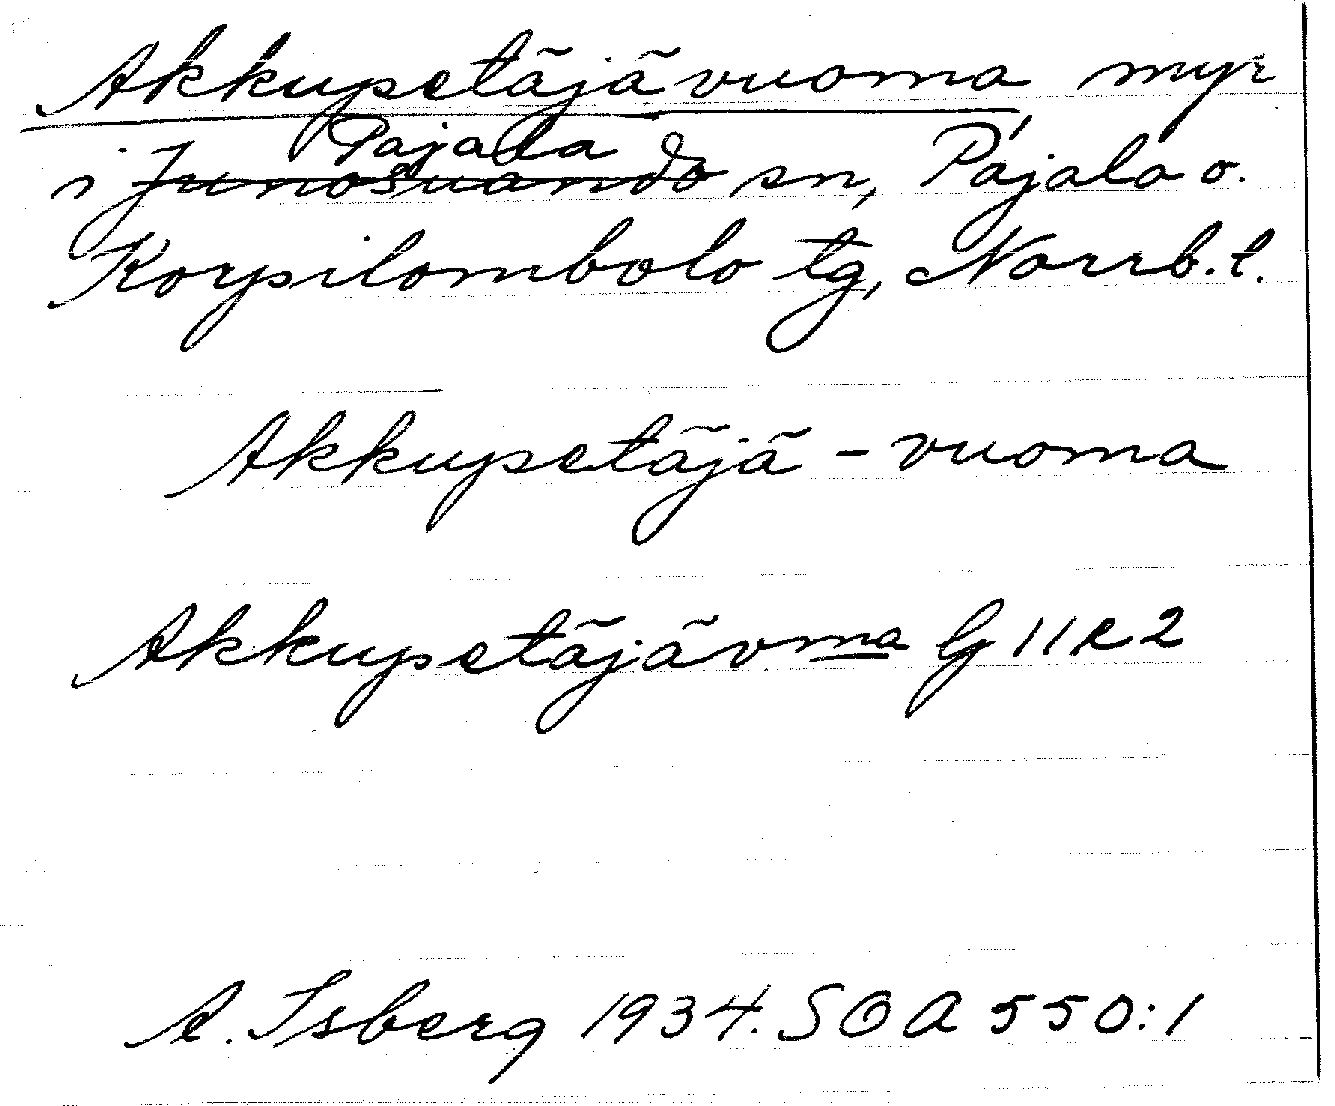 Akkupetäjävuoma myr
Pajala
i Junosuando sn, Pajala o.
Korpilombolo tg, Norrb. l.
Akkupetäjä - vuoma
Akkupetäjävma G 11 R 2
A. Isberg 1934. SOA 550:1